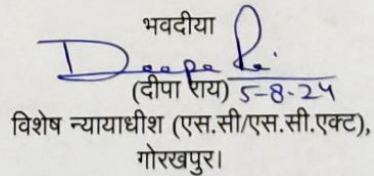 भवदीया
Deepa Rai
(दीपा राय) 5-8-24
विशेष न्यायाधीश (एस.सी/एस.सी.एक्ट),
गोरखपुर।